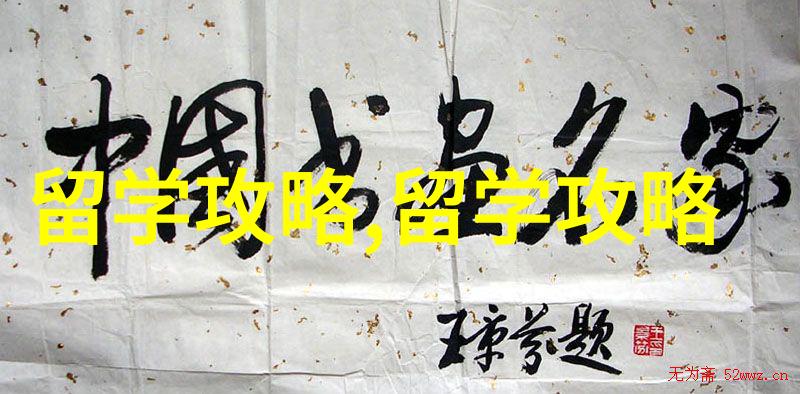 中国书画名家
留学攻略,留学攻略
王京芬题
无为斋 52wwz.cn